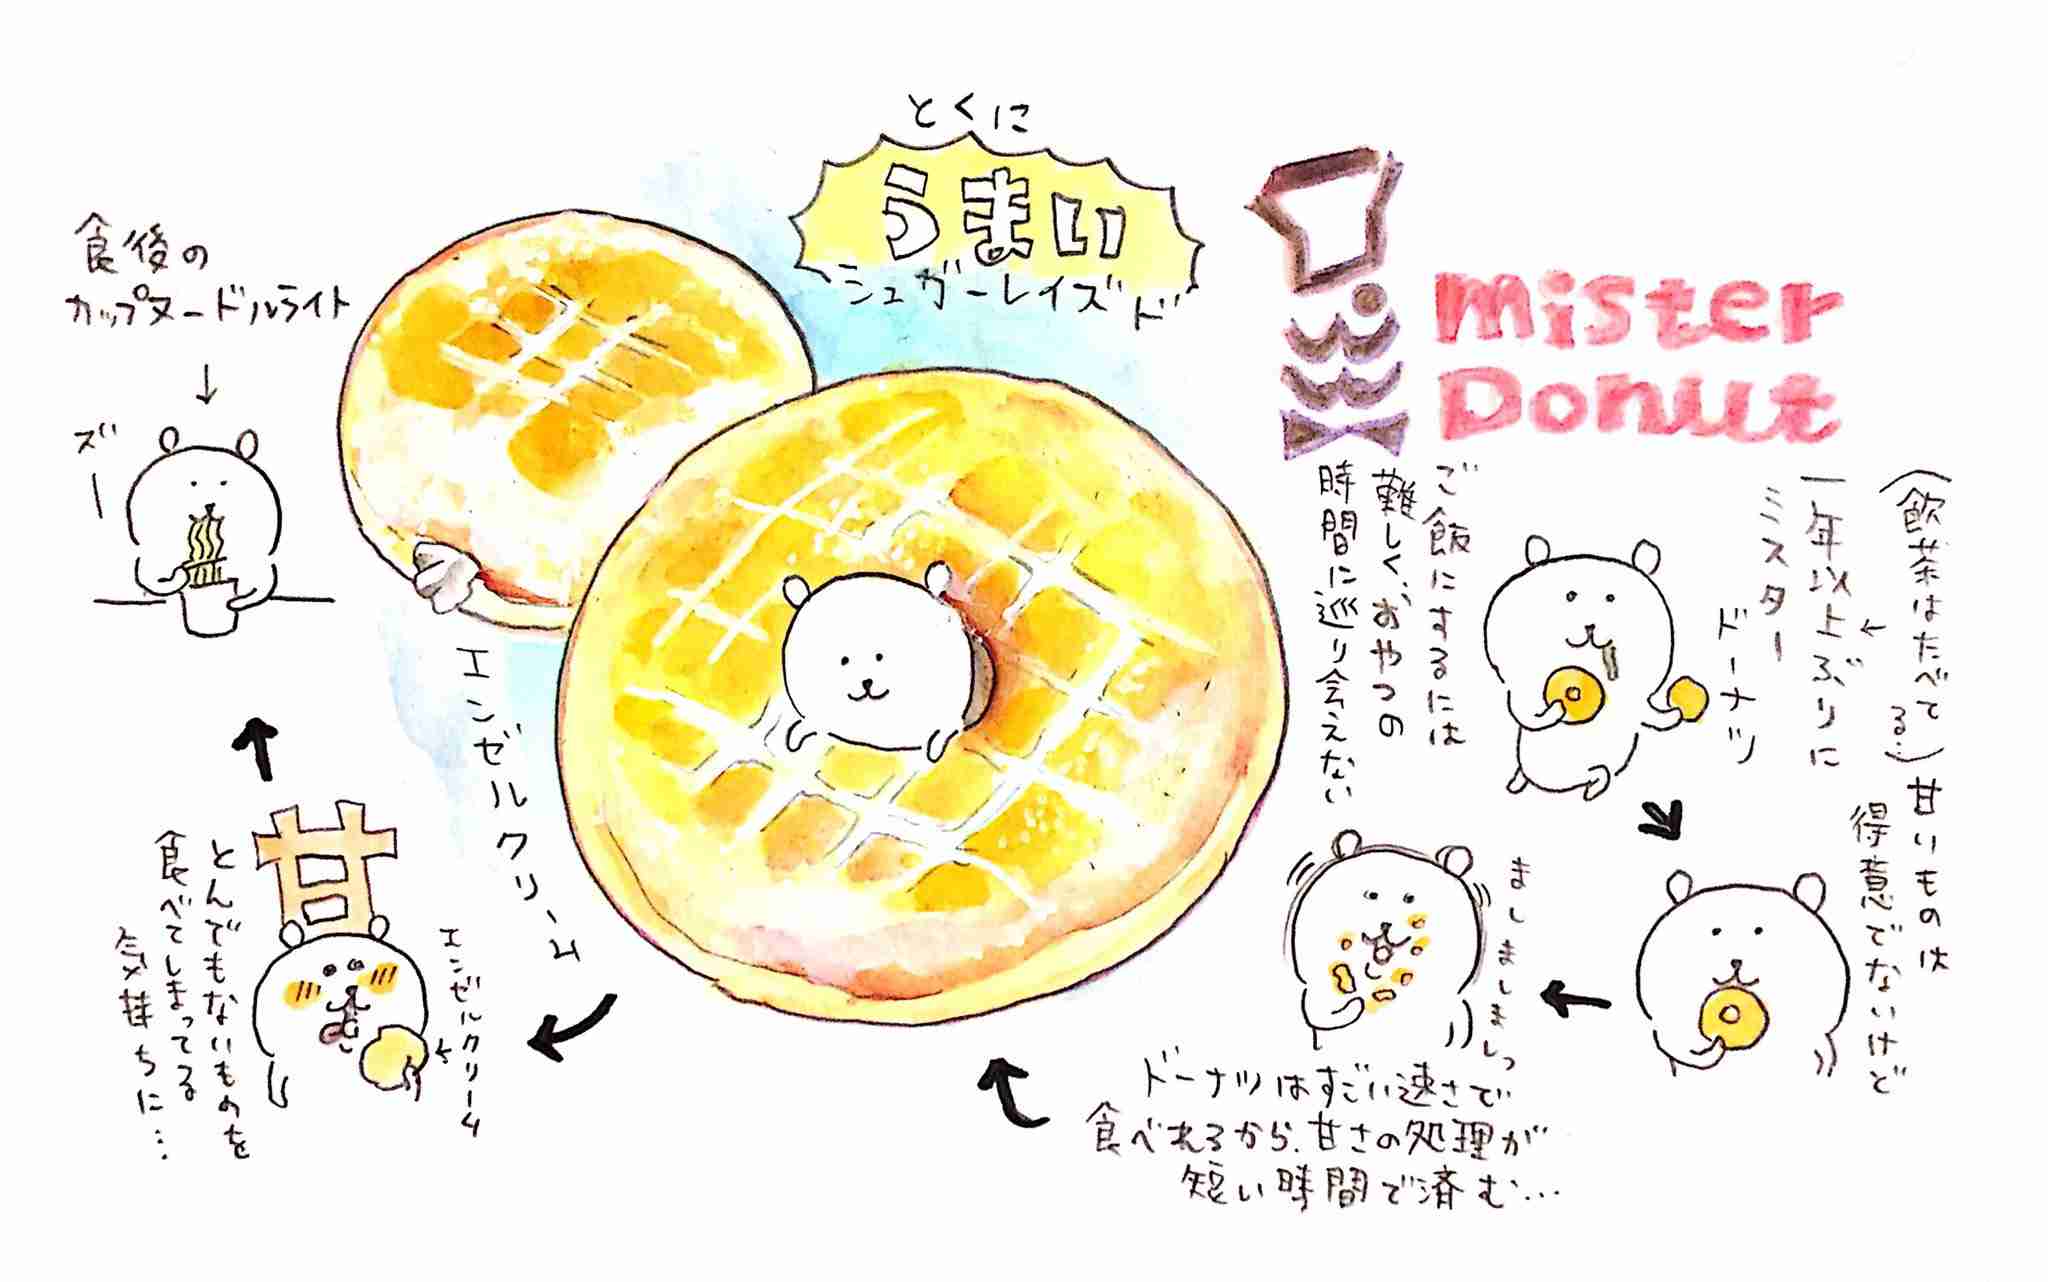 とくに
うまい
シュガーレイズド
mister
Donut
(飲茶はたべてる…)
一年以上ぶりに
ミスター
ドーナツ
ご飯にするには
難しく、おやつの
時間に巡り会えない
甘いものは
得意でないけど
ましましましっ
ドーナツはすごい速さで
食べれるから、甘さの処理が
短い時間で済む…
エンゼルクリーム
エンゼルクリーム
甘
とんでもないものを
食べてしまってる
気持ちに…
食後の
カップヌードルライト
ズー